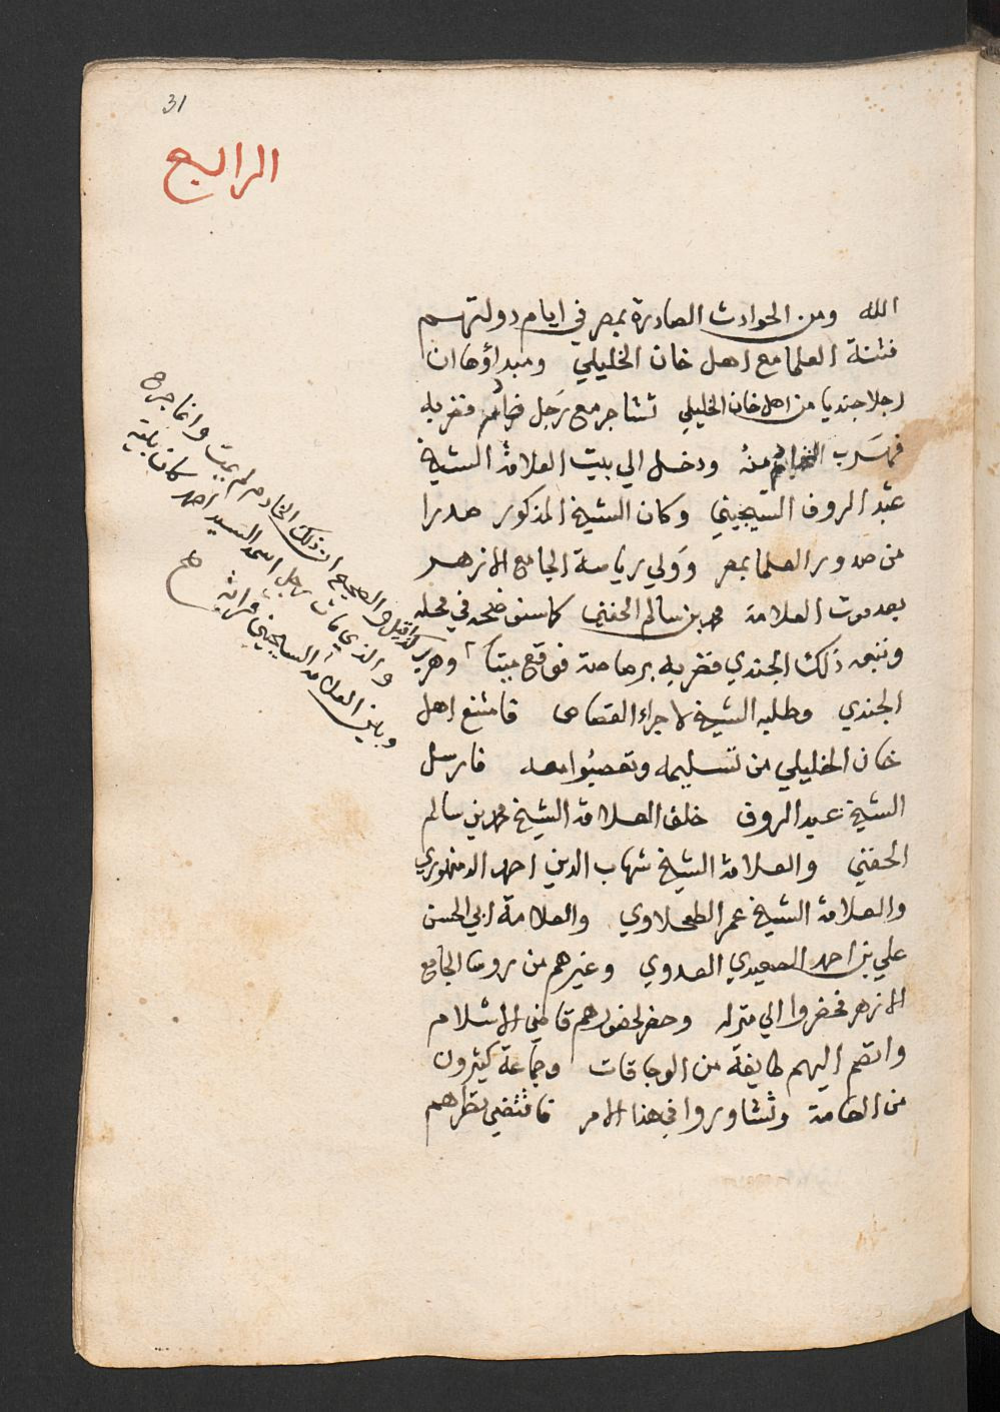 31
الرابع
الله ومن الحوادث الصادرة بمصر في ايام دولتهم
فتنة العلما مع اهل خان الخليلي ومبداؤها ان
رجلا جنديا من اهل خان الخليلي تشاجر مع رجل خادم فضربه
فهرب الخادم منه ودخل الي بيت العلامة الشيخ
عبد الروف السجيني وكان الشيخ المذكور صدرا
من صدور العلما بمصر وولي رياسة الجامع الازهر
بعد موت العلامة محمد بن سالم الحفني كما سنوضحه في محله
وتبعه ذلك الجندي فضربه برصاصة فوقع ميتا وهرب
الجندي وطلبه الشيخ لاجراء القصاص فامتنع اهل
خان الخليلي من تسليمه وتعصبوا معه فارسل
الشيخ عبد الروف خلف العلامة الشيخ محمد بن سالم
الحفني والعلامة الشيخ شهاب الدين احمد الدمنهوري
والعلامة الشيخ عمر الطحلاوي والعلامة ابي الحسن
علي بن احمد الصعيدي العدوي وغيرهم من روسا الجامع
الازهر فحضروا الي منزله وحضر لحضورهم قاضي الاسلام
وانضم اليهم طايفة من الوجاقات وجماعة كثيرون
من العامة وتشاوروا في هذا الامر فاقتضي نظرهم
كذا قيل والصحيح ان ذلك الخادم لم يمت وانما جرح
والذي مات رجل اسمه السيد احمد كان بينه
وبين العلامة السجيني قرابة
صح